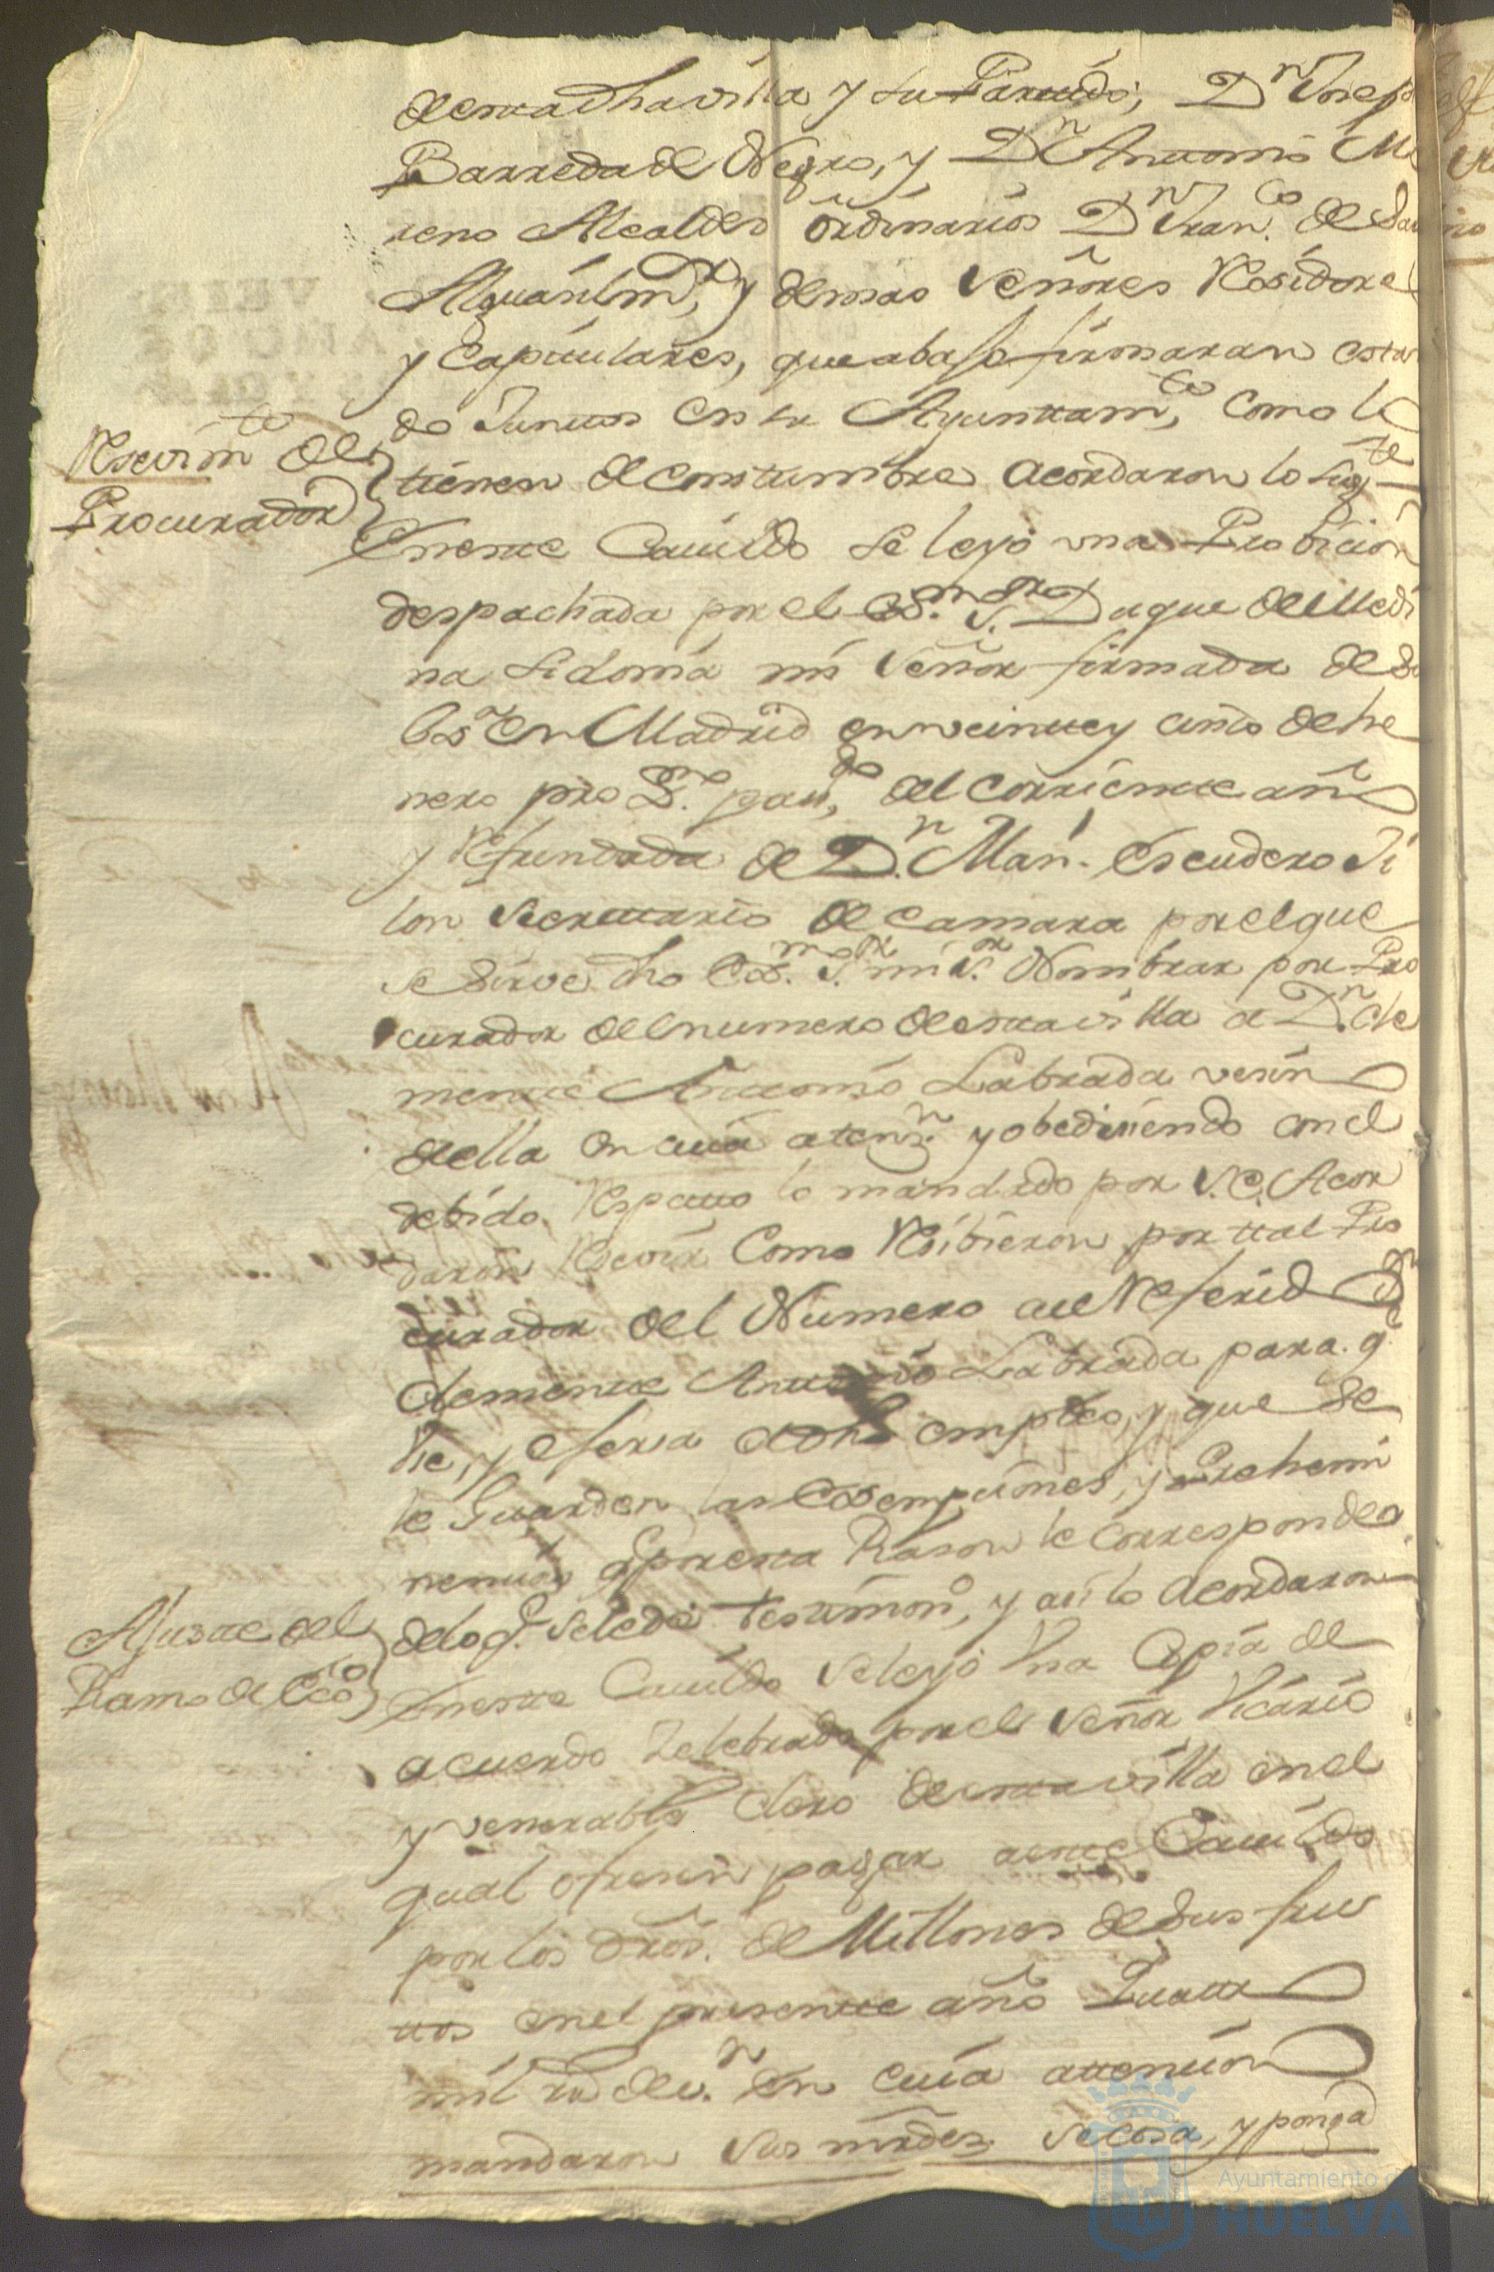 de esta dha villa y su Partido, Dn Josep
Barreda de Negro, y Dn Antonio Mo
reno Alcaldes ordinarios Dn Fran.co de
Alguasil mr, y demas señores Residores
y Capitulares, que abaso firmaran estan
do Juntos en su Ayuntam.to, como lo
tienen de constumbre acordaron lo sigte
Resevim.to de
Procurador
En este Cavildo se leyó una Probición
despachada por el Ex.mo S.or Duque de Medi
na Sidonia mi señor firmada de Su
Ex.a en Madrid en veinte y cinco de he
nero pro S.mo pasa,do del corriente año
y Refrendada de D.n Man.l Escudero Ji
lon secretario de camara por el que
se sirve dho Ex.mo S.or mi S.or Nombrar por Pro
curador del numero de esta villa a D.n Cle
mente Antonio Labrada vesino
della en cuia atenz.n y obediciendo con el
debido Respecto lo mandado por S.E. Acor
daron Resevir Como Resibieron por tal Pro
curador del Numero a el Referido Dn
Clemente Antonio Labrada para q.e
Vse, y esersa dho empleo, y que se
le Guarden las Exempciones, y Prehemi
nencias q.e por esta Rason le corresponden
de lo q.e se le dé testimon.o, y asi lo acordaron
Ajuste del
Ramo de Ecco
En este Cavildo se leyó Vna Copia de
acuerdo Zelebrado por el señor Vicario
y venerable Clero de esta villa en el
qual ofresen pagar a este Cavildo
por los dros. de Millones de sus fru
tos en el presente año Quatro
mil rs de v.n En cuia attencion
mandaron sus mrdes. se cosa, y ponga
Ayuntamiento de
HUELVA